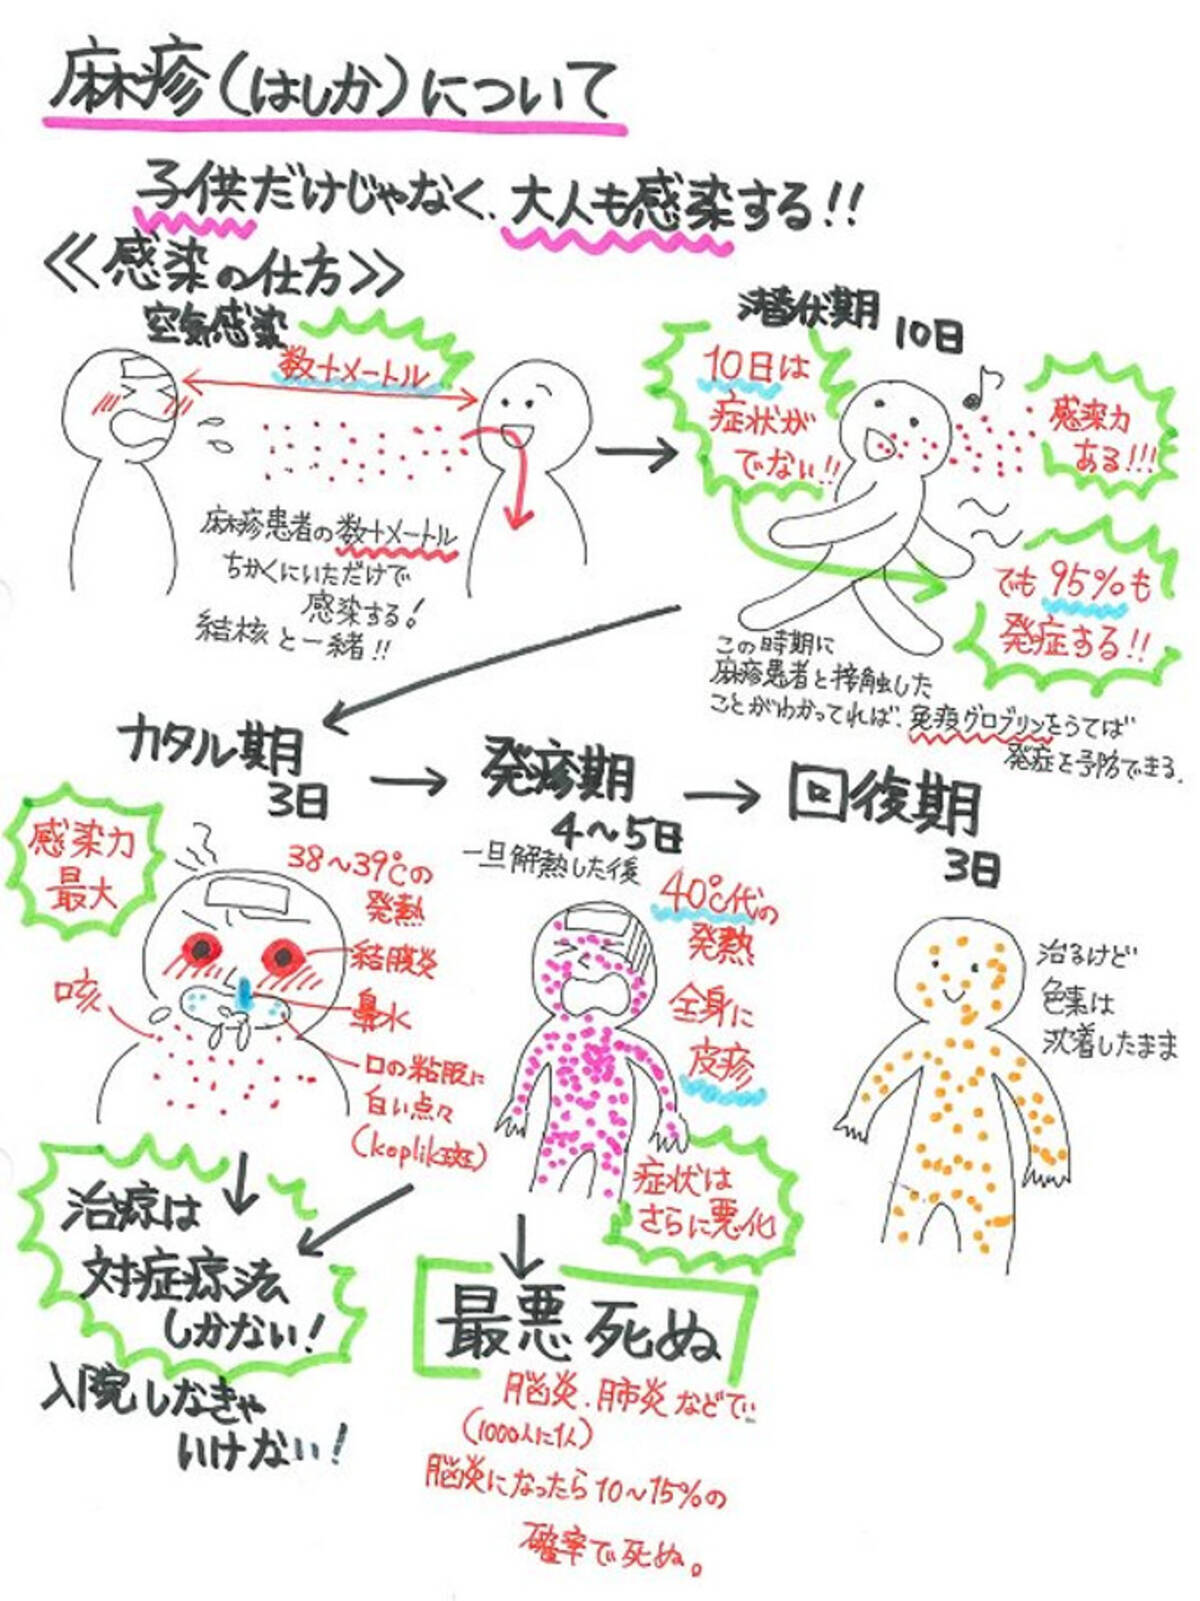 麻疹(はしか)について
子供だけじゃなく、大人も感染する!!
≪感染の仕方≫
空気感染
数十メートル
麻疹患者の数十メートル
ちかくにいただけで
感染する!
結核と一緒!!
潜伏期 10日
10日は
症状が
でない!!
感染力
ある!!!
でも95%も
発症する!!
この時期に
麻疹患者と接触した
ことがわかってれば、免疫グロブリンをうてば
発症を予防できる。
カタル期
3日
感染力
最大
38〜39℃の
発熱
結膜炎
鼻水
咳
口の粘膜に
白い点々
(koplik斑)
治療は
対症療法
しかない!
入院しなきゃ
いけない!
発疹期
4〜5日
一旦解熱した後
40℃代の
発熱
全身に
皮疹
症状は
さらに悪化
最悪死ぬ
脳炎、肺炎などで
(1000人に1人)
脳炎になったら10〜15%の
確率で死ぬ。
回復期
3日
治るけど
色素は
沈着したまま